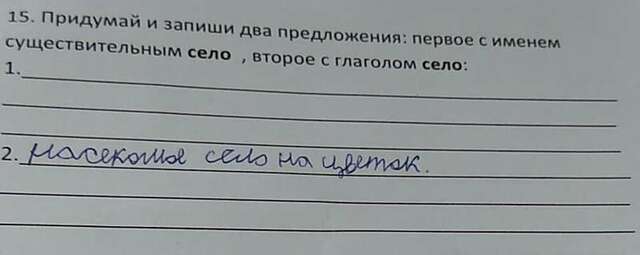 15. Придумай и запиши два предложения: первое с именем
существительным село , второе с глаголом село:
1.
2. Насекомое село на цветок.